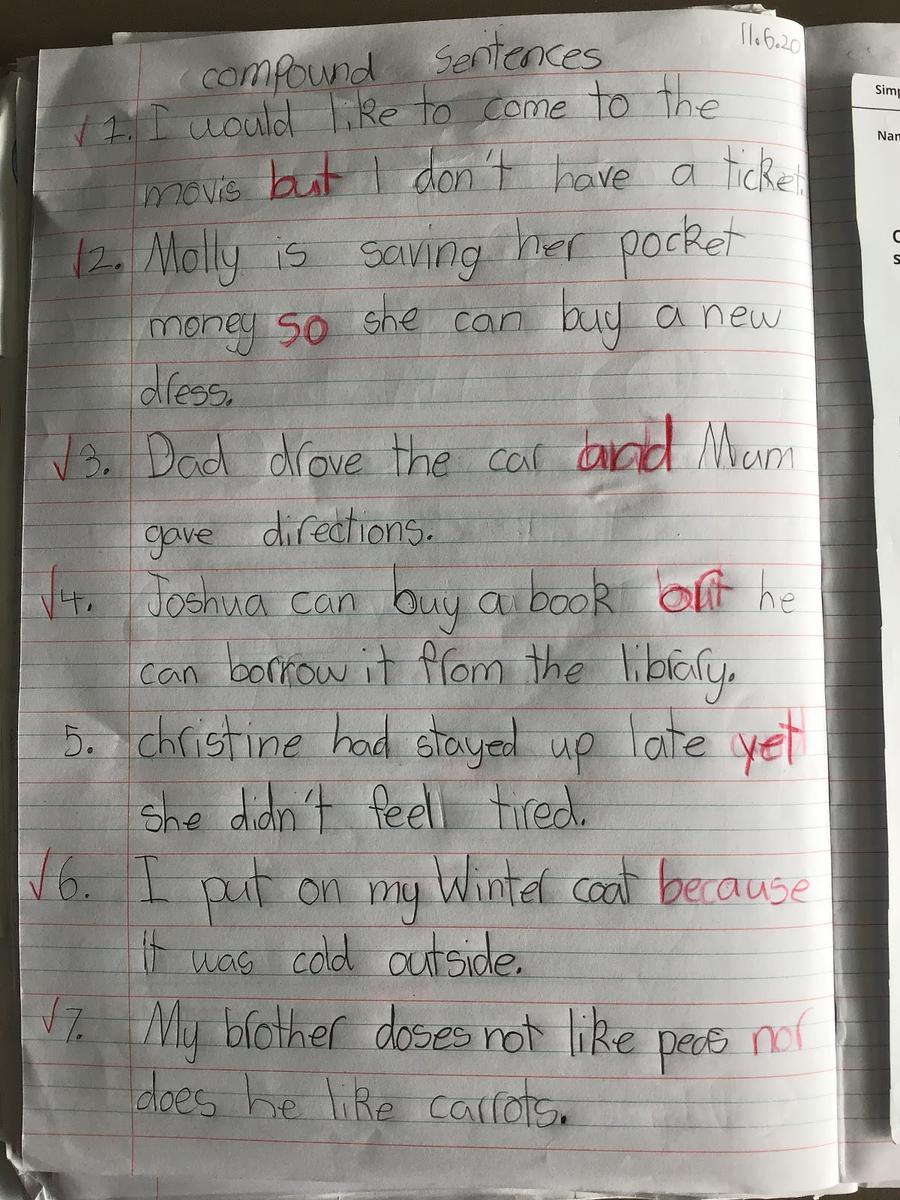 11.6.20
compound sentences
√ 1. I would like to come to the
movis but I don't have a ticket.
√2. Molly is saving her pocket
money so she can buy a new
dress.
√3. Dad drove the car and Mum
gave directions.
√4. Joshua can buy a book he
can borrow it from the library.
5. christine had stayed up late yet
she didn't feel tired.
√6. I put on my Winter coat because
it was cold outside.
√7. My brother doses not like peas nor
does he like carrots.